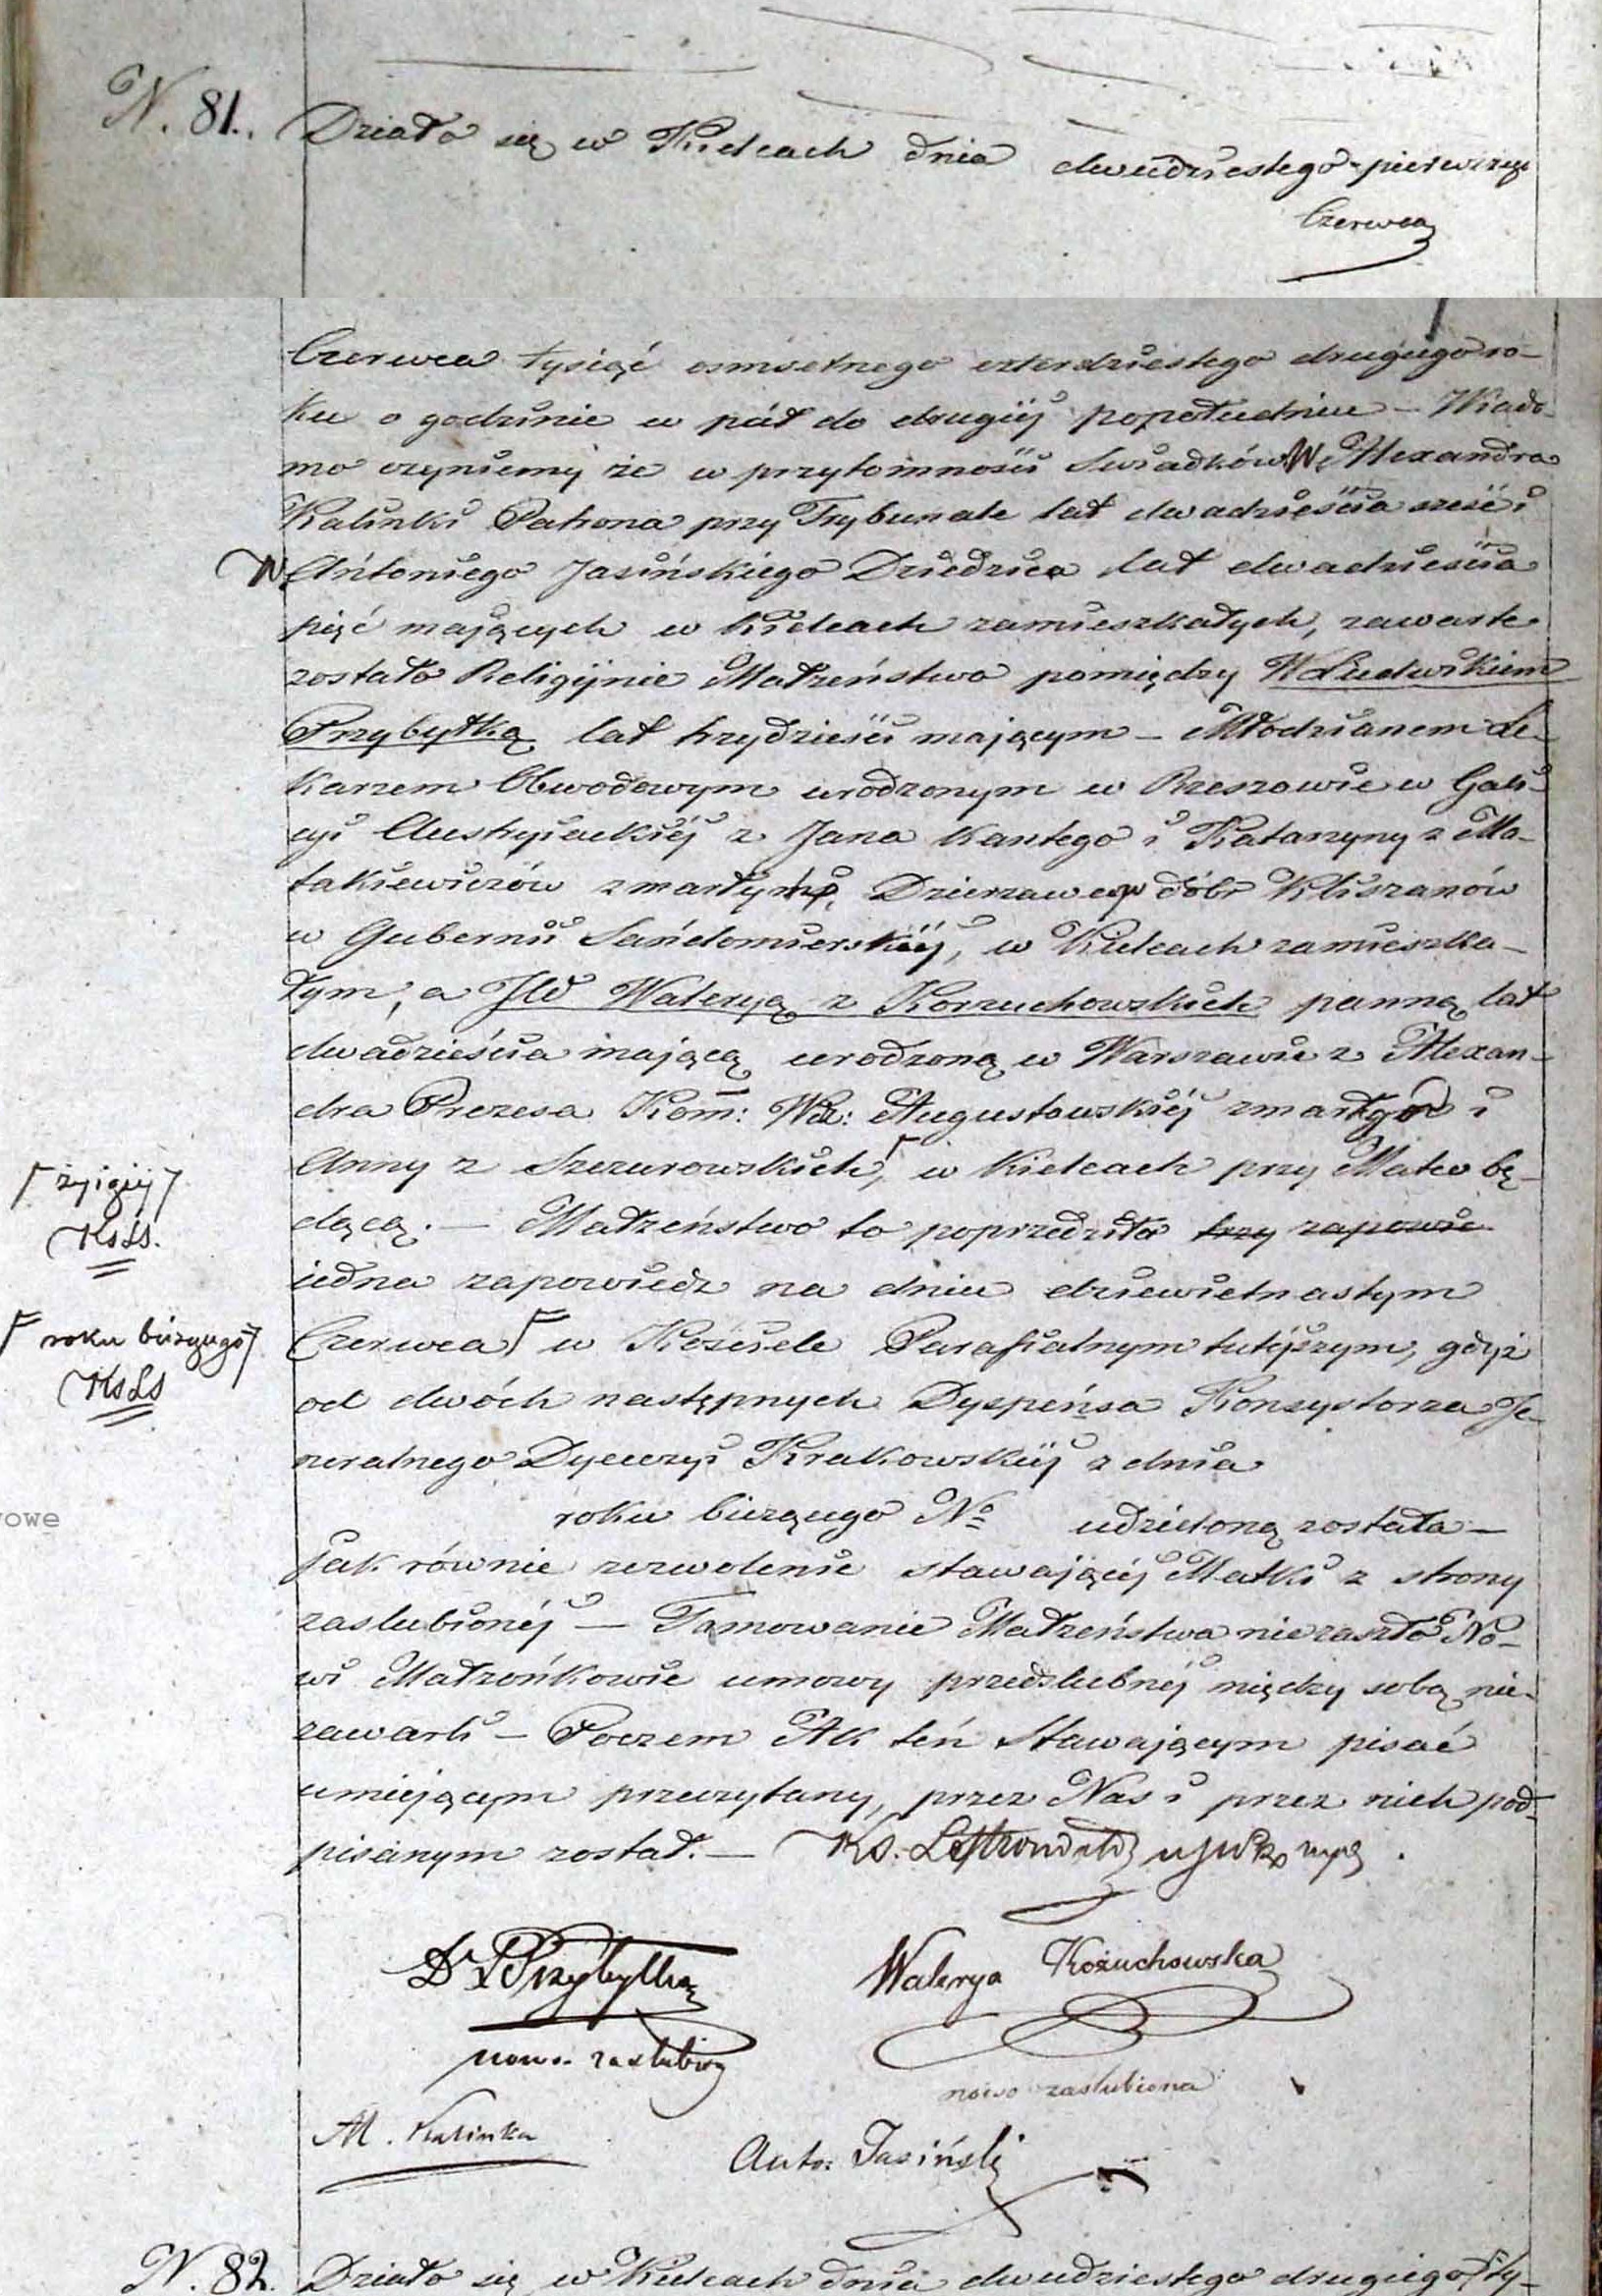 N. 81. Działo się w Kielcach dnia dwudziestego-pierwszego
Czerwca
Czerwca tysiąć osmsetnego czterdziestego drugiego ro-
ku o godzinie w pół do drugiéj popołudniu – Wiado-
mo czyniemy że w przytomności Swiadków W. Alexandra
Kalinki Patrona przy Trybunale lat dwadzieścia sześć i
W Antoniego Jasińskiego Dziedzica lat dwadzieścia
pięć mających w Kielcach zamieszkałych, zawarte
zostało Religijnie Małżeństwo pomiędzy W Ludwikiem
Przybyłką lat trzydzieści mającym – Młodzianem Le-
karzem Obwodowym urodzonym w Rzeszowie w Gali-
cyi Austryiackiéj z Jana Kantego i Katarzyny z Ma-
takiewiczów zmarłym, Dzierzawcy dóbr Kliszanów
w Gubernii Sandomierskiéj, w Kielcach zamieszka-
łym, a JW Waleryą z Korzuchowskich panną lat
dwadzieścia mającą urodzoną w Warszawie z Alexan-
dra Prezesa Kom: Wd: Augustowskiéj zmarłego i
Anny z Szczurowskich, w Kielcach przy Matce bę-
żyiącéj
KsLS.
dącą. – Małżeństwo to poprzedziła trzy zapowie
iedna zapowiedz na dniu dziewietnastym
Czerwca w Kościele Parafialnym tutéjszym, gdyż
roku bieżącego
KsLS
od dwóch następnych Dyspensa Konsystorza Je-
neralnego Dyecezyi Krakowskiéj z dnia
roku bieżącego No udzieloną została –
owe
jak równie zezwolenie stawającéj Matki z strony
zaslubionéj – Tamowanie Małżeństwa nie zaszło No-
wi Małżońkowie umowy przedslubnéj między sobą nie-
zawarli – Poczem Akt ten Stawającym pisać
umiejącym przeczytany, przez Nas i przez nich pod-
pisanym został. – Ks.
Dr L Przybyłko Walerya Kożuchowska
nowo. zaslubiony nowo zaslubiona
Al. Kalinka Anto: Jasiński
N. 82. Działo się w Kielcach dnia dwudziestego drugiego ty-